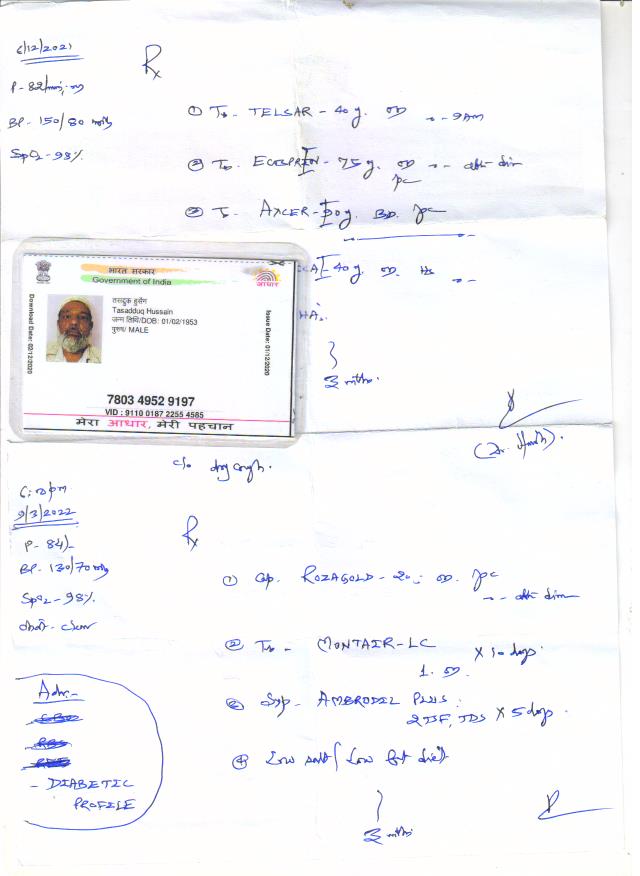 6/12/2021
Rx
P - 82/min,
BP - 150/80
SpO2 - 98%
① Tb. TELSAR - 40 g. OD - 9AM
② Tb. ECOSPRIN - 75 g. OD
pc
③ T. AXCER - 90 g. BD. pc
40 g. OD. HS
भारत सरकार
Government of India
आधार
तसद्दुक हुसैन
Tasadduq Hussain
जन्म तिथि/DOB: 01/02/1953
पुरुष/ MALE
Download Date: 02/12/2020
Issue Date: 01/12/2020
7803 4952 9197
VID : 9110 0187 2255 4585
मेरा आधार, मेरी पहचान
3 mths.
c/o dry cough.
9/3/2022
Rx
P - 84/-
BP - 130/70
SpO2 - 98%
chest - clear
① Cap. ROZAGOLD - 20 OD. pc
② Tb - MONTAIR-LC x 10 days.
1. OD
③ Syp - AMBRODIL PLUS.
2TSF, TDS x 5 days.
④ Low salt / Low fat diet
3 mths
Adv.-
- DIABETIC
PROFILE